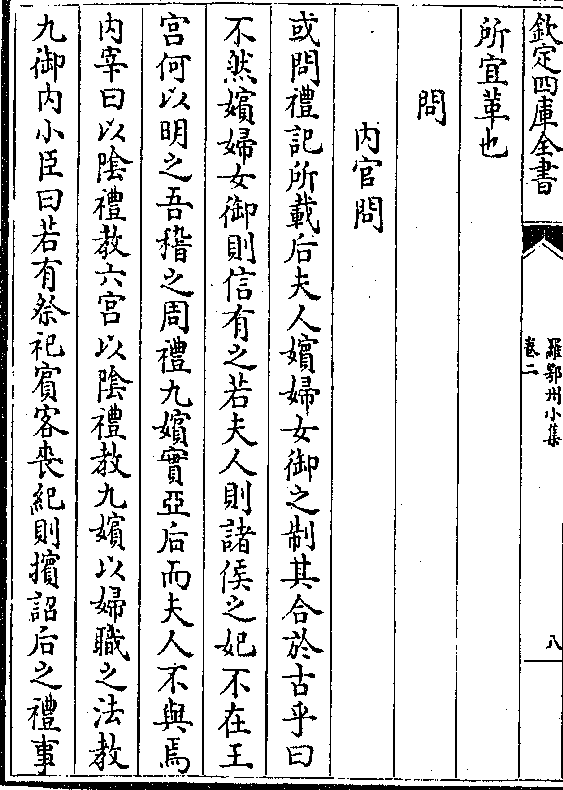 欽定四庫全書
羅鄂州小集
卷二
八
所宜革也
問
内官問
或問禮記所載后夫人嬪婦女御之制其合於古乎曰
不然嬪婦女御則信有之若夫人則諸侯之妃不在王
宫何以明之吾稽之周禮九嬪實亞后而夫人不與焉
内宰曰以隂禮教六宫以隂禮教九嬪以婦職之法教
九御内小臣曰若有祭祀賓客喪紀則擯詔后之禮事